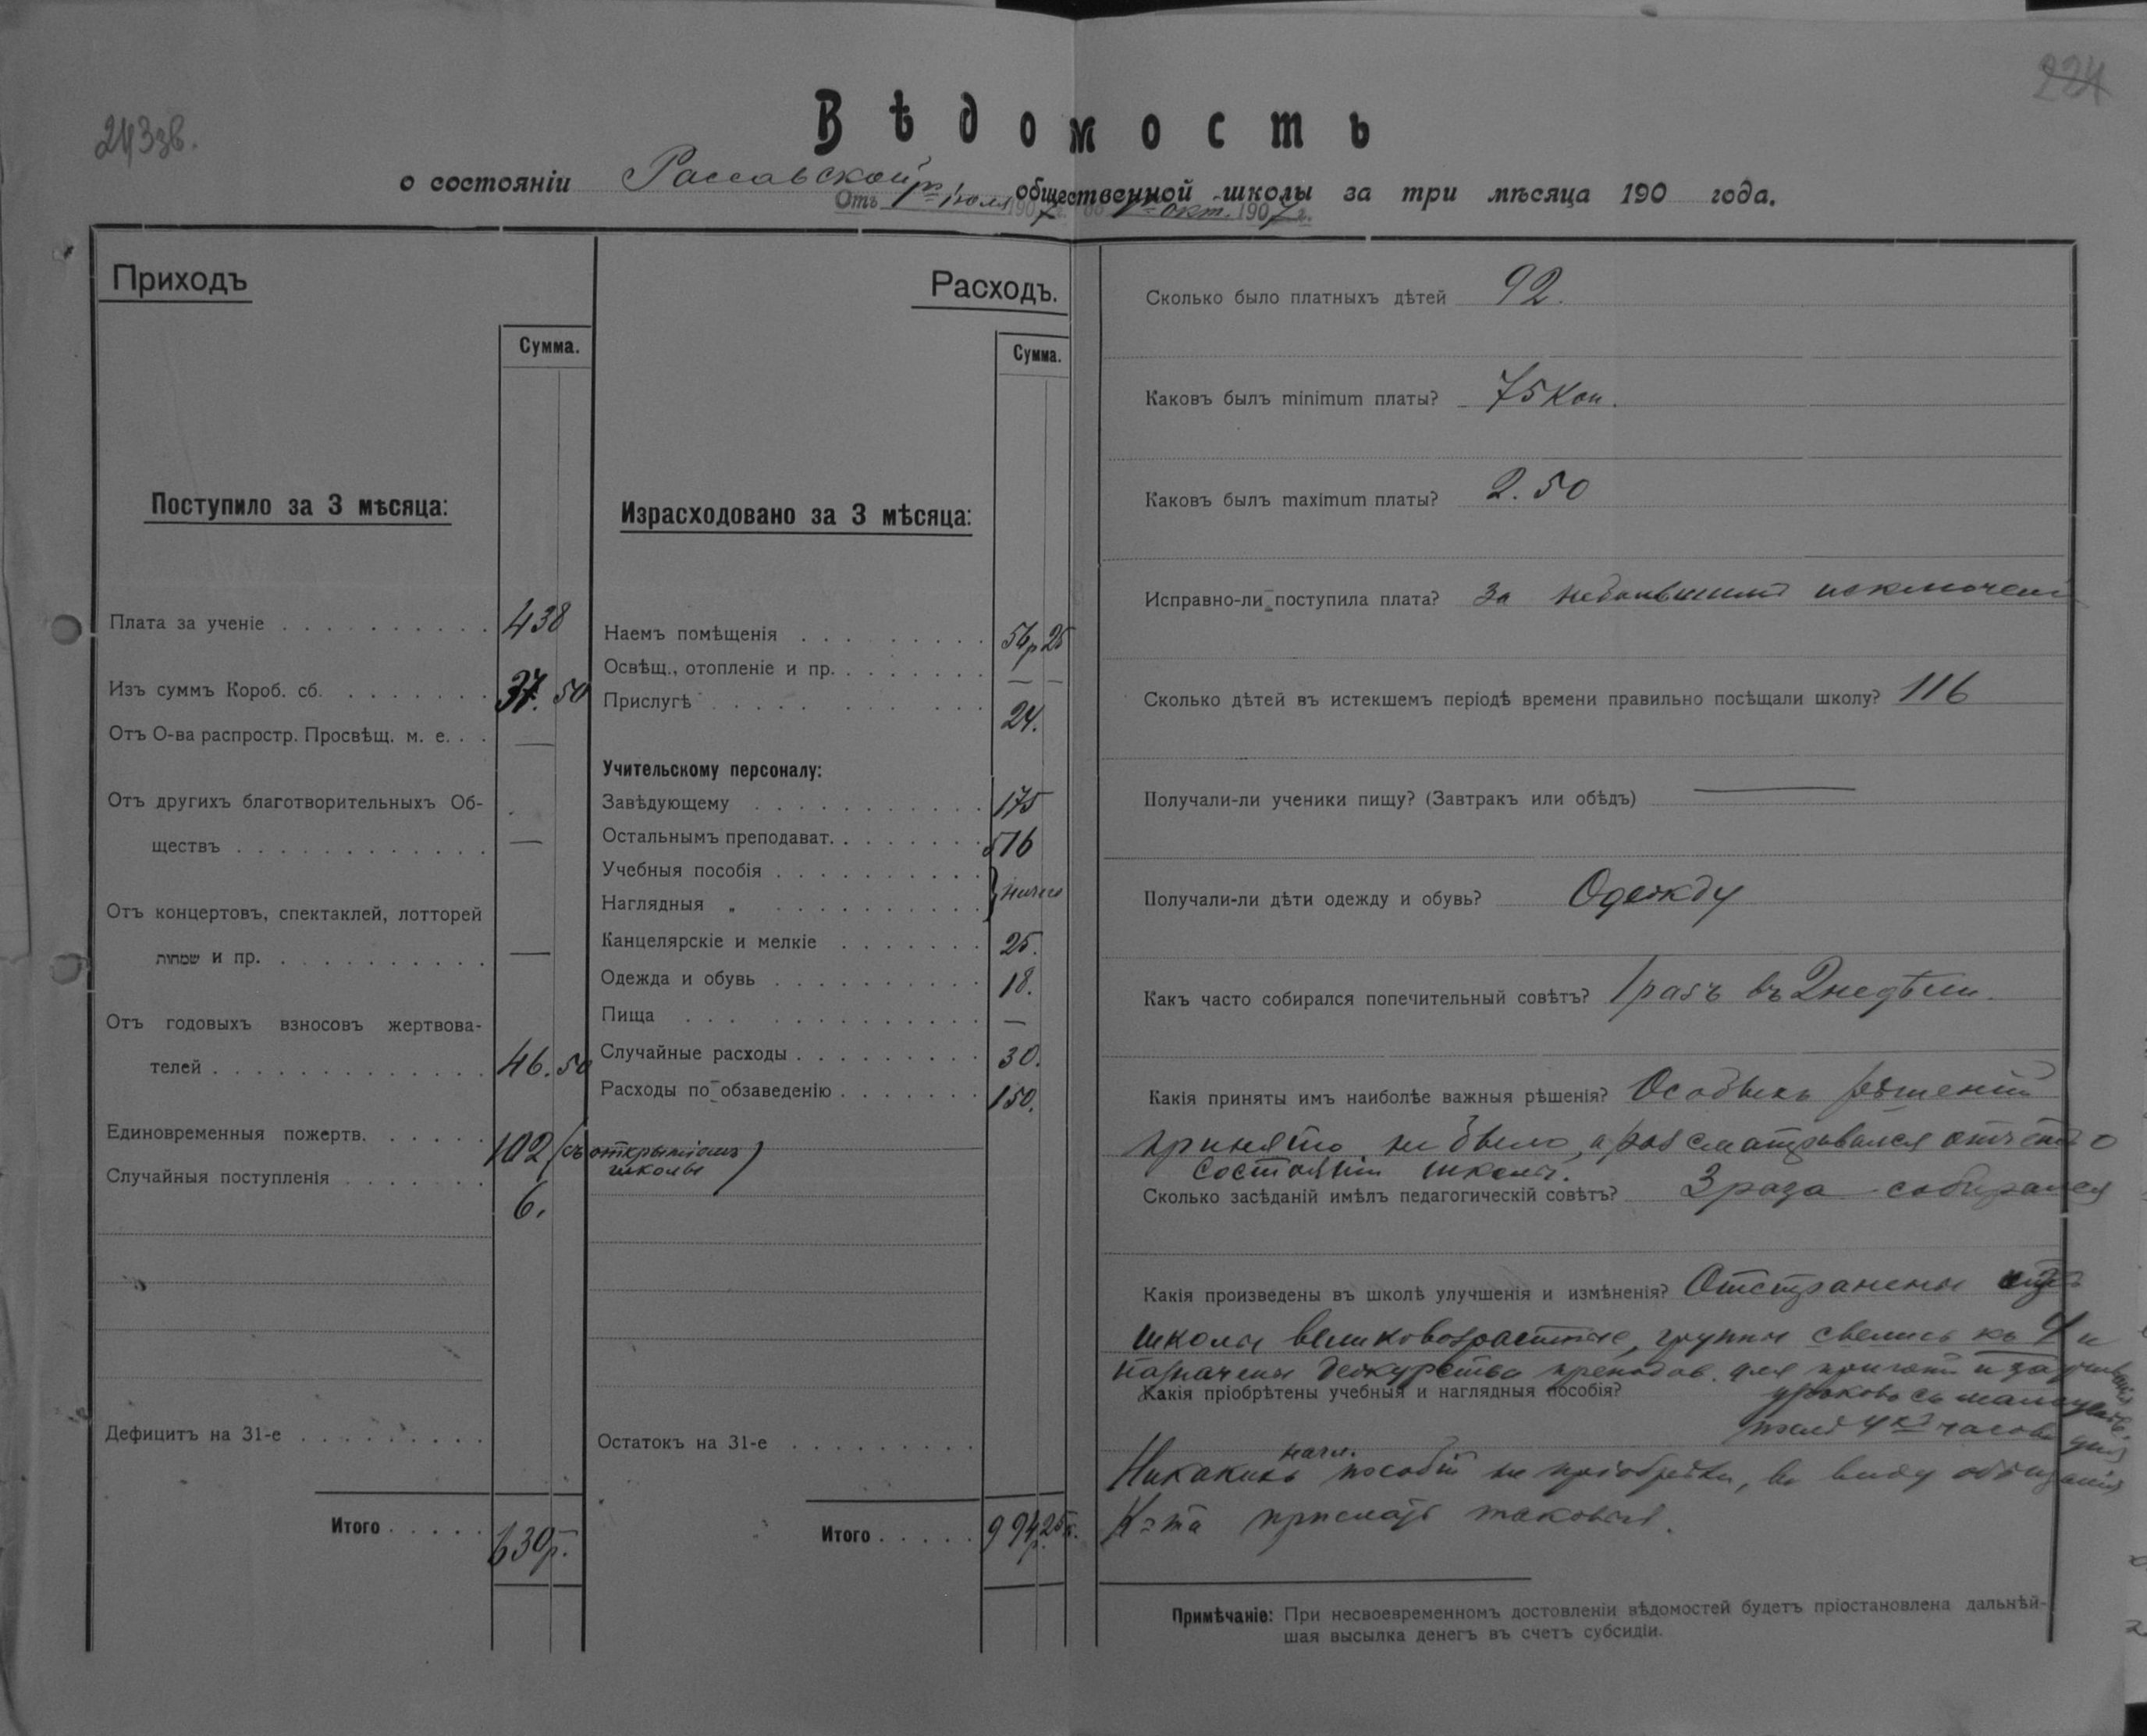 243зв.
224
Вѣдомость
о состоянiи Рассавской общественной школы за три мѣсяца 190 года.
Отъ 1го iюля 1907 до 1го окт. 1907 г.
Приходъ
Сумма.
Поступило за 3 мѣсяца:
Плата за ученiе . . . . . . . . . . 438
Изъ суммъ Короб. сб. . . . . . . . 37. 50
Отъ О-ва распростр. Просвѣщ. м. е. . . —
Отъ другихъ благотворительныхъ Об-
ществъ . . . . . . . . . . . . —
Отъ концертовъ, спектаклей, лотторей
שמחות и пр. . . . . . . . . . . —
Отъ годовыхъ взносовъ жертвова-
телей . . . . . . . . . . . . . 46. 50
Единовременныя пожертв. . . . . . 102 (съ открытiемъ
школы)
Случайныя поступленiя . . . . . . . 6.
Дефицитъ на 31-е . . . . . . . . .
Итого . . . . . 630р. —
Расходъ.
Сумма.
Израсходовано за 3 мѣсяца:
Наемъ помѣщенiя . . . . . . . . . 56р 25
Освѣщ., отопленiе и пр. . . . . . . . — —
Прислугѣ . . . . . . . . . . . . 24.
Учительскому персоналу:
Завѣдующему . . . . . . . . . . . 175
Остальнымъ преподават. . . . . . . . 516
Учебныя пособiя . . . . . . . . . .
Наглядныя „ . . . . . . . . . .
Канцелярскiе и мелкiе . . . . . . . 25.
Одежда и обувь . . . . . . . . . . 18.
Пища . . . . . . . . . . . . . —
Случайные расходы . . . . . . . . . 30.
Расходы по обзаведенiю . . . . . . . 150.
Остатокъ на 31-е . . . . . . . . .
Итого . . . . . 994р. 25к.
Сколько было платныхъ дѣтей 92.
Каковъ былъ minimum платы? 75 коп.
Каковъ былъ maximum платы? 2. 50
Исправно-ли поступила плата? За небольшимъ исключенi
Сколько дѣтей въ истекшемъ перiодѣ времени правильно посѣщали школу? 116
Получали-ли ученики пищу? (Завтракъ или обѣдъ) —
Получали-ли дѣти одежду и обувь? Одежду
Какъ часто собирался попечительный совѣтъ? 1 разъ въ 2 недѣли.
Какiя приняты имъ наиболѣе важныя рѣшенiя? Особыхъ рѣшенiй
принято не было, а разсматривался отчетъ о
состоянiи школы.
Сколько засѣданiй имѣлъ педагогическiй совѣтъ? 3 раза собирался
Какiя произведены въ школѣ улучшенiя и измѣненiя? Отстранены изъ
школы великовозрастные, группы свелись къ 4 и
назначены дежурства преподав. для
уроковъ съ
послѣ 4хъ часовъ дня
Какiя прiобрѣтены учебныя и наглядныя пособiя?
Никакихъ нагл. пособiй не прiобрѣтали, въ виду обѣщанiя
К-та прислать таковыя.
Примѣчанiе: При несвоевременномъ достовленiи вѣдомостей будетъ прiостановлена дальнѣй-
шая высылка денегъ въ счетъ субсидiи.